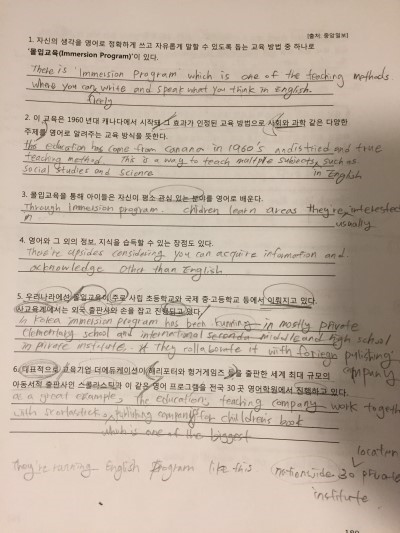 [출처: 중앙일보]
1. 자신의 생각을 영어로 정확하게 쓰고 자유롭게 말할 수 있도록 돕는 교육 방법 중 하나로
'몰입교육(Immersion Program)'이 있다.
There is Immersion Program which is one of the teaching methods
where you can write and speak what you think in english.
freely
2. 이 교육은 1960년대 캐나다에서 시작돼 그 효과가 인정된 교육 방법으로 사회와 과학 같은 다양한
주제를 영어로 알려주는 교육 방식을 뜻한다.
this education has come from canana in 1960's and is tried and true
teaching method. This is a way to teach multiple subjects, such as
social studies and science in English
3. 몰입교육을 통해 아이들은 자신이 평소 관심 있는 분야를 영어로 배운다.
Through Immersion program. children learn areas they're interested
in usually
4. 영어와 그 외의 정보, 지식을 습득할 수 있는 장점도 있다.
There're upsides considering you can acquire infomation and
acknowledge other than English
5. 우리나라에선 몰입교육이 주로 사립 초등학교와 국제 중·고등학교 등에서 이뤄지고 있다.
사교육계에서는 외국 출판사와 손을 잡고 진행되고 있다.
in Korea immersion program has been running in mostly private
elementary school and international middle and high school
in private institute. they collaborate it with foriegn pulishing
company
6. 대표적으로 교육기업 더에듀케이션이 해리포터와 헝거게임즈 등을 출판한 세계 최대 규모의
아동서적 출판사인 스콜라스틱과 이 같은 영어 프로그램을 전국 30곳 영어학원에서 진행하고 있다.
as a great example, the education, teaching company work together
with scorlastick, publishing company for children's book
which is one of the biggest
They're running English program like this (nationwide 30 private
location
institute